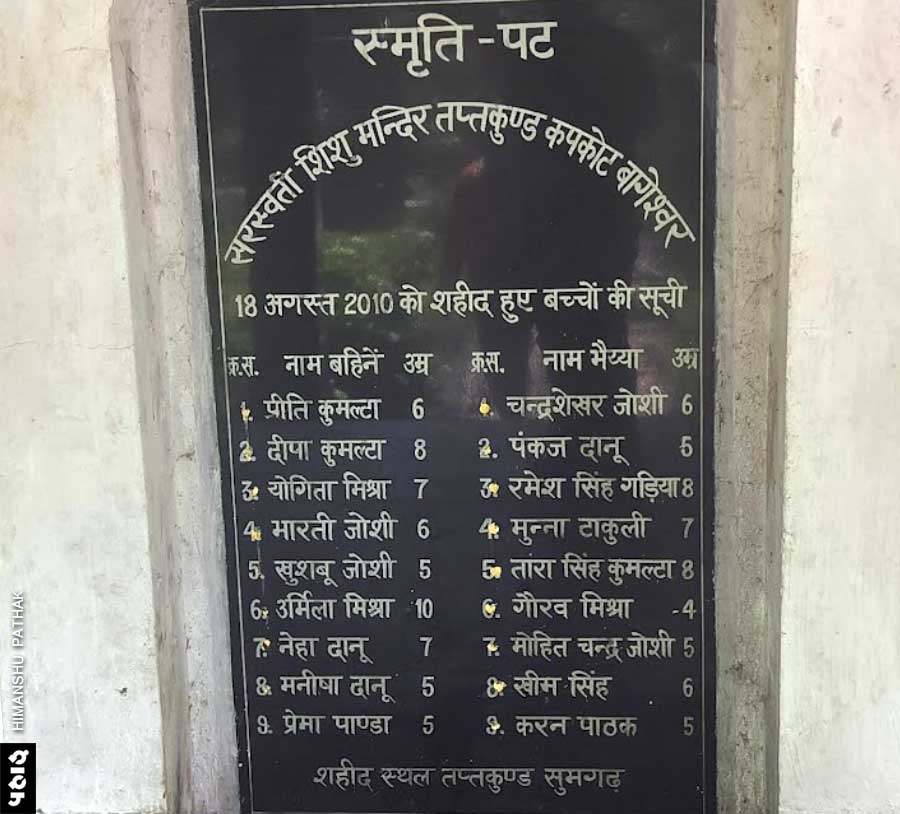 स्मृति - पट
सरस्वती शिशु मन्दिर तप्तकुण्ड कपकोट बागेश्वर
18 अगस्त 2010 को शहीद हुए बच्चों की सूची
क्र.स. नाम बहिनें उम्र क्र.स. नाम भैय्या उम्र
1. प्रीति कुमल्टा 6 1. चन्द्रशेखर जोशी 6
2. दीपा कुमल्टा 8 2. पंकज दानू 5
3. योगिता मिश्रा 7 3. रमेश सिंह गड़िया 8
4. भारती जोशी 6 4. मुन्ना टाकुली 7
5. खुशबू जोशी 5 5. तारा सिंह कुमल्टा 8
6. उर्मिला मिश्रा 10 6. गौरव मिश्रा -4
7. नेहा दानू 7 7. मोहित चन्द्र जोशी 5
8. मनीषा दानू 5 8. खीम सिंह 6
9. प्रेमा पाण्डा 5 9. करन पाठक 5
शहीद स्थल तप्तकुण्ड सुमगढ़
HIMANSHU PATHAK
पहाड़